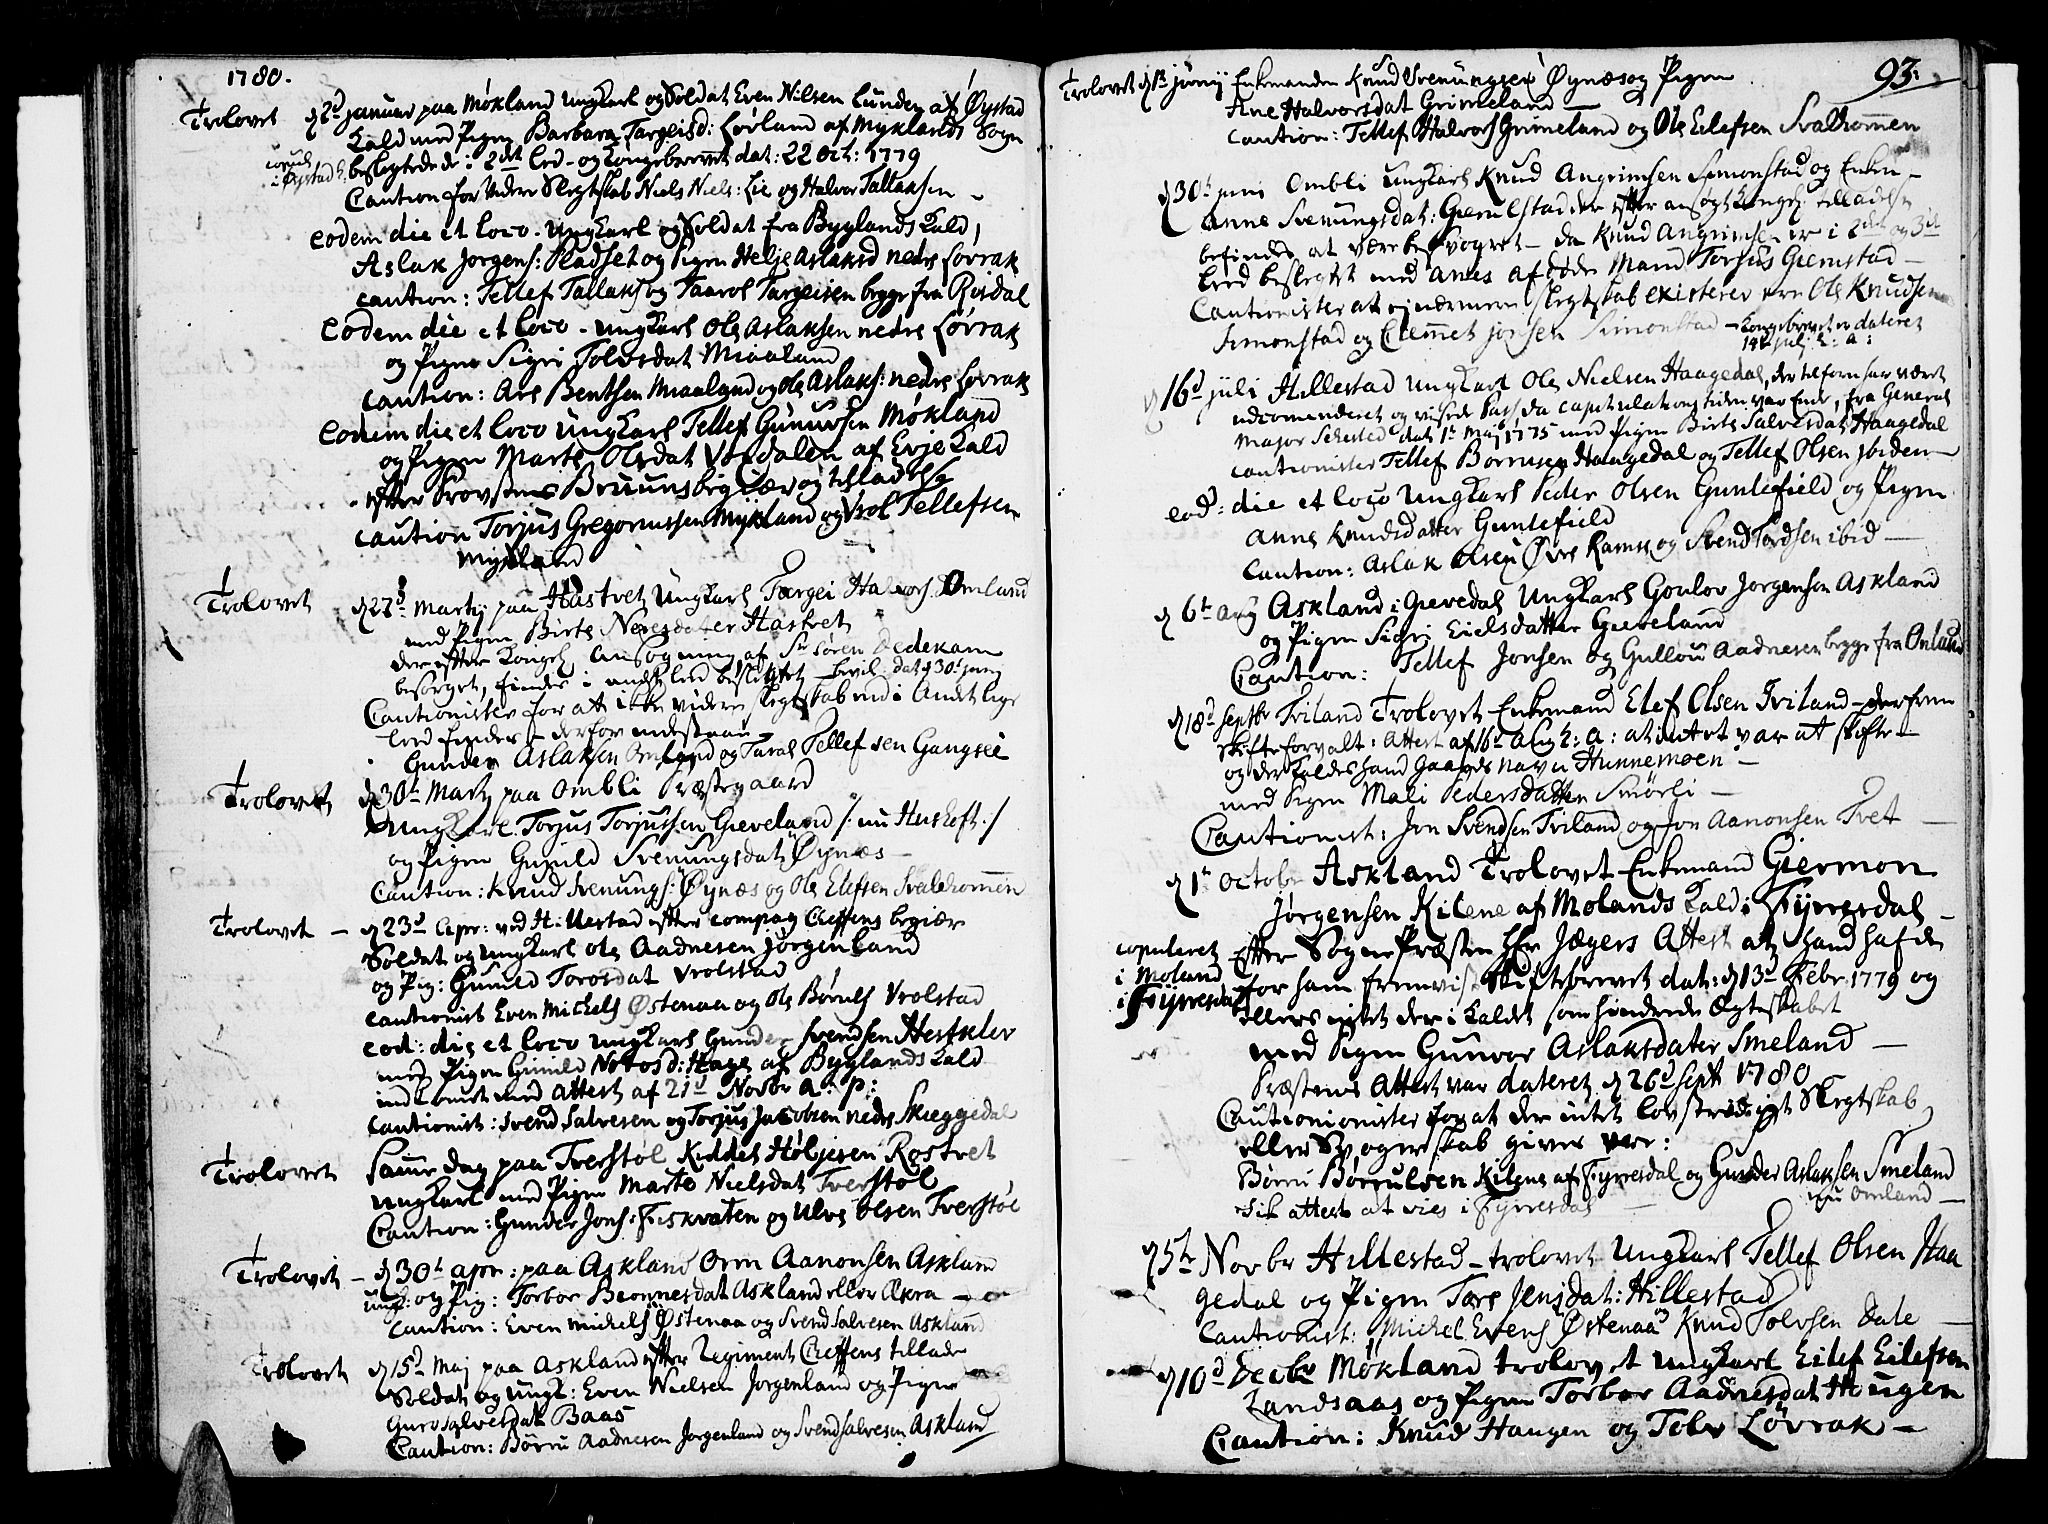 1780.
Trolovet d 2d januar paa Møkland Ungkarl og Soldat Even Nilsen Lunden af Øystad
Kald med Pigen Barbara Targeisd: Lørland af Myklands Sogn
copul: i Øystad K.
beslegtede i 2det led - og Kongebrevet dat: 22 Oct: 1779
Caution for Vider Slegtskab Niels Niels: Lie og Halvor Tallaksen -
eodem die et loco - Ungkarl og Soldat fra Byglands Kald,
Aslak Jorgens: Pladset og Pigen Helje Aslaksd nedre Løvrak
caution: Tellef Tallaks og Taarol Targeisen begge fra Risdal
eodem die et loco - Ungkarl Ole Aslaksen nedre Løvrak
og Pigen Sigri Tolvsdat Miaaland
caution: Are Bentsen Miaaland og Ole Aslaks: nedre Løvrak
eodem die et loco Ungkarl Tellef Gunursen Møkland
og Pigen Marte Olsdat Vordalen af Evje Kald
efter Provstens Bruuns begier og tilladelse
caution Torjus Gregoriussen Mykland og Vrol Tellefsen
Mykland
Trolovet d 27d Martj paa Hastvet Ungkarl Targei Halvors: Omland
med Pigen Birte Neresdater Hastvet
der efter Kongel Ansogning af Sr Søren Dedekam
besørget, findes i andet led beslegtet - bevil: dat d 30t junj
Cautionister for att ikke videre slegtskab end i Andet lige
led findes - derfor indestaar
Gunder Aslaksen Omland og Taral Tellefsen Gangsei
Trolovet d 30t Martj paa Ombli Præstegaard
Ungkarl Torjus Torjussen Gieveland /: nu Huskeft :/
og Pigen Gunild Svenungsdat Øynæs -
Caution: Knud Svenungs: Øynæs og Ole Elefsen Svalehommen
Trolovet - d 23d Apr: ved Hillestad efter compag Cheffens begiær
Soldat og Ungkarl Ole Aadnesen Jørgenland
og Pig: Gunild Torosdat Vrolstad
cautionist Even Michels Østenaa og Ole Børuls Vrolstad
eod: die et loco Ungkarl Gunder Svendsen Hestklev
med Pigen Gunild Notosd: Hage af Byglands Kald
indkomt med Attest af 21d Novbr a: p:
cautionist: Svend Salvesen og Torjus Jacobsen nedre Skieggedal
Trolovet Samme dag paa Tverstøl Kiddel Høljesen Rostvet
Ungkarl med Pigen Marte Nielsdat Tverstøl
Caution: Gunder Jons: Fiskvaten og Ulve Olsen Tverstøl
Trolovet - d 30t apr: paa Askland Orm Aanonsen Askland
ungk: og Pig: Torbor Biønnesdat Askland eller Ækra -
Caution: Even Michels Østenaa og Svend Salvesen Askland
Trolovet d 15d Maj paa Askland efter Regiment Cheffens tillade
Soldat og ungk: Even Nielsen Jorgenland og Pigen
Guro Salvesdat Baas
Caution: Børru Aadnesen Jorgenland og Svend Salvesen Askland
93:
Trolovet d 12 junij Enkemanden Knud Svenungsen Øynæs og Pigen
Ane Halvorsdat Grimeland
caution: Tellef Halvors Grimeland og Ole Elefsen Svalhommen
d 30t juni Ombli Ungkarl Knud Angrimsen Simonstad og Enken -
Anne Svenungsdat: Giemlestad der efter ansøgt Kongel: tilladelse
befindes at være besvogret - da Knud Angrimsen er i 2det og 3die
Leed beslegtet med Anes afdøde Mand Torjus Giemstad -
Cautionister at ej nærmere slegtskab existerer ere Ole Knudsen
Simonstad og Clemmet Jonsen Simonstad - Kongebrevet er dateret
14t julj h: a:
d 16d juli Hillestad Ungkarl Ole Nielsen Haagedal, der tilforn har været
udcomenderet og viste Pass da capitulations tiden var Ende, fra General
Major Sehested dat 1t Maj 1775 med Pigen Birte Salvesdat Haagedal
cautionister Tellef Borrusen Haagedal og Tellef Olsen ibidem -
eod: die et loco Ungkarl Peder Olsen Guntefield og Pigen
Anne Knudsdatter Guntefield
Caution: Aslak Olsen Øvre Ramse og Svend Tordsen ibid -
d 6t aug Askland i Gievedal Ungkarl Gonlov Jorgensen Askland
og Pigen Sigri Eielsdatter Gieveland
Caution: Tellef Jonsen og Gullou Aadnesen begge fra Omland
d 18d Septbr Triland Trolovet Enkemand Elef Olsen Triland - der frem
Skifteforvalt: Attest af 16d Aug h: a: at intet var at skifte -
og der Kaldes hand Gaards navn Hunnemoen -
med Pigen Mali Pedersdatter Smörli -
Cautionist: Jon Svendsen Triland og Jon Aanonsen Tvet -
d 1t Octobr Askland Trolovet Enkemand Giermon
Jørgensen Kilene af Molands Kald i Fyrresdal -
copuleret
i Moland
i Fyrresdal
Efter Sogne Præsten Hr Jægers Attest at hand hafde
for ham fremvist Skiftebrevet dat: d 13d Febr: 1779 og
ellers intet der i Kaldet som hindrede Ægteskabet
med Pigen Gunvor Aslaksdater Smeland -
Præstens Attest var dateret d 26d Septbr 1780
Cautionionister for at der intet lovstridigt Slegtskab
eller Svogerskab gives ere:
Børru Børrulsen Kilene af Fyrresdal og Gunder Aslaksen Smeland
nu Omland -
fik attest at vies i Fyrresdal -
d 5te Novbr Hillestad - trolovet Ungkarl Tellef Olsen Haa
gedal og Pigen Tare Jensdat: Hillestad
Cautionist: Michel Evens Østenaa Knud Tolvsen Dale -
d 10d Decbr Møkland trolovet Ungkarl Eilef Eilefsen
Landsaas og Pigen Torbor Aadnesdat Haugen
Caution: Knud Haugen og Tolv Løvrak -